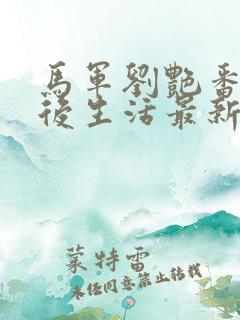 馬軍劉艷番
後生活最新
蒙特雷
未经同意禁止转载